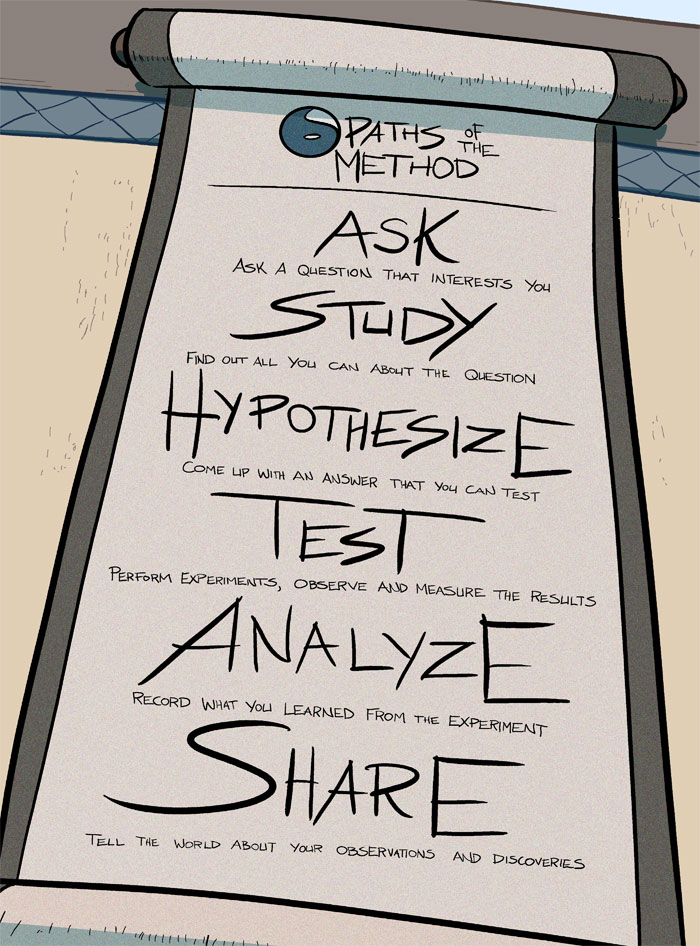 6 PATHS OF THE
METHOD
ASK
ASK A QUESTION THAT INTERESTS YOU
STUDY
FIND OUT ALL YOU CAN ABOUT THE QUESTION
HYPOTHESIZE
COME UP WITH AN ANSWER THAT YOU CAN TEST
TEST
PERFORM EXPERIMENTS, OBSERVE AND MEASURE THE RESULTS
ANALYZE
RECORD WHAT YOU LEARNED FROM THE EXPERIMENT
SHARE
TELL THE WORLD ABOUT YOUR OBSERVATIONS AND DISCOVERIES